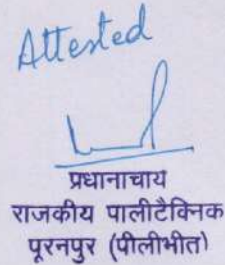 Attested
प्रधानाचाय
राजकीय पालीटैक्निक
पूरनपुर (पीलीभीत)